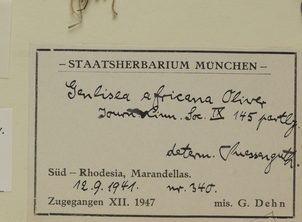 – STAATSHERBARIUM MÜNCHEN –
Genlisea africana Oliver
Journ. Linn. Soc. IX 145 partly.
determ. Suessenguth.
Süd – Rhodesia, Marandellas.
12.9.1941. nr. 340.
Zugegangen XII. 1947 mis. G. Dehn